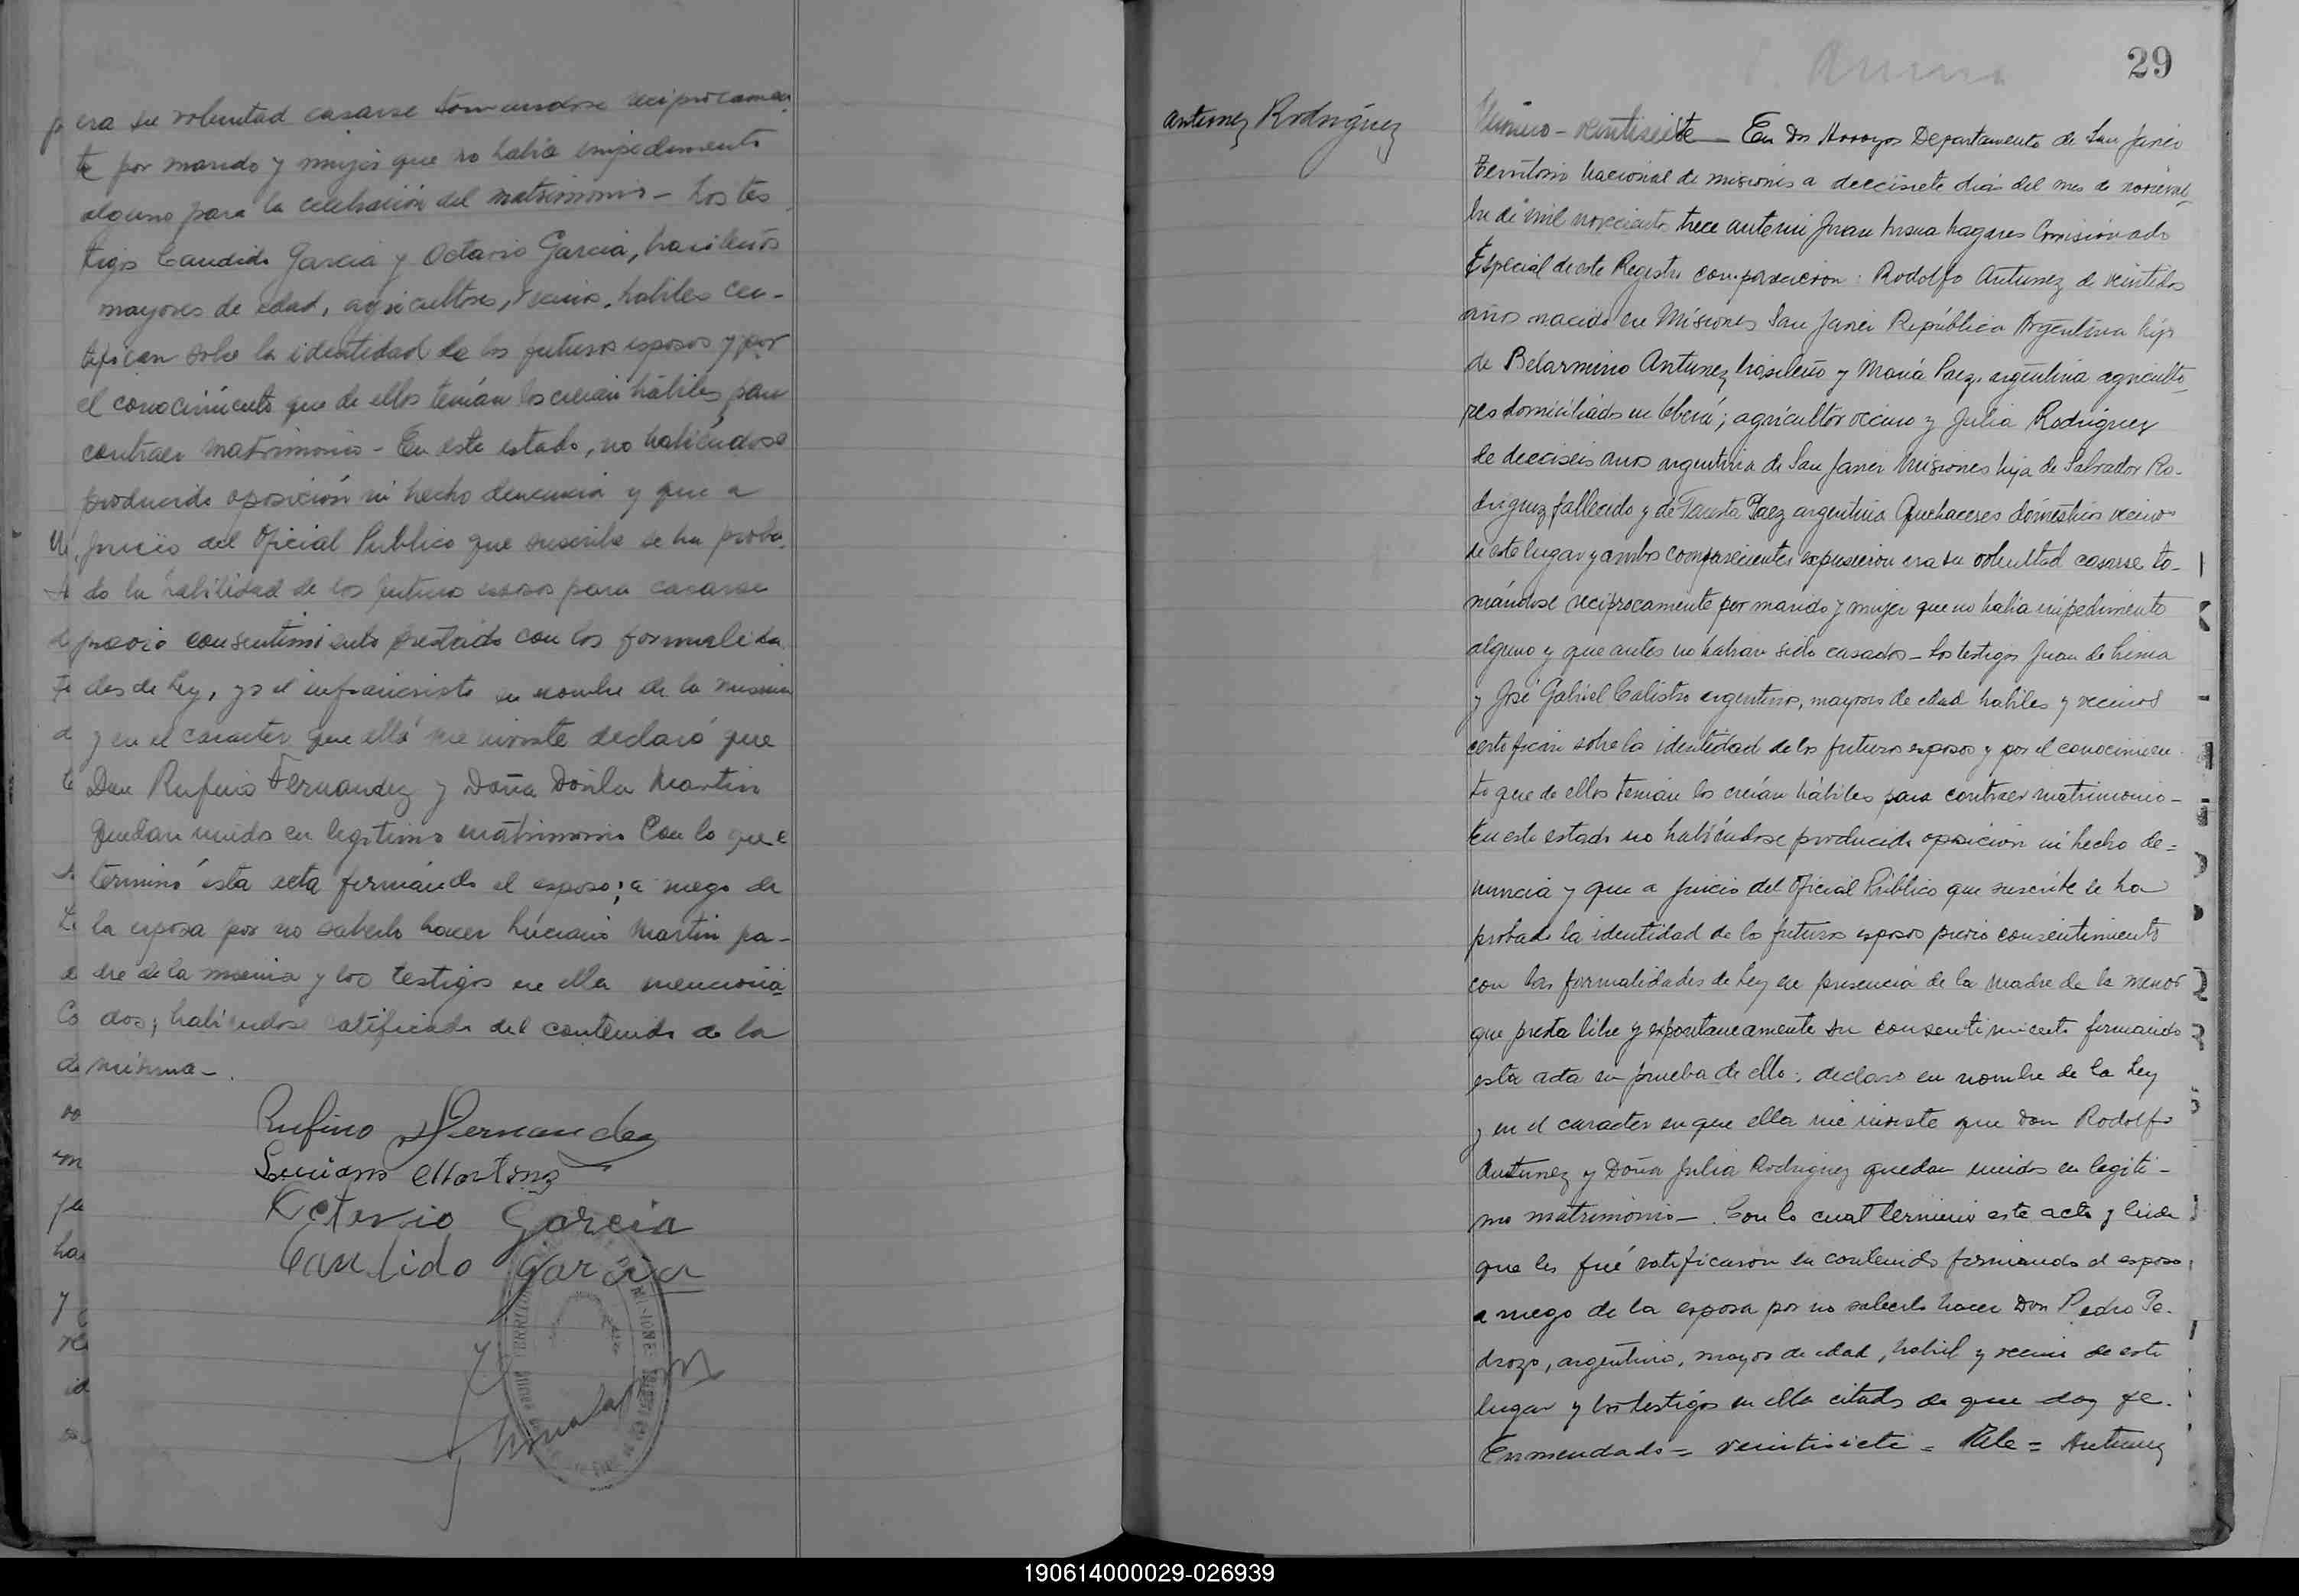 era su voluntad casarse tomandose reciprocamen
te por marido y mujer que no habia impedimento
alguno para la celebración del matrimonio - Los tes
tigos Candido Garcia y Octavio Garcia, brasileños
mayores de edad, agricultores, vecinos, habiles cer-
tifican sobre la identidad de los futuros esposos y por
el conocimiento que de ellos tenían los creian hábiles para
contraer matrimonio - En este estado, no habiéndose
producido oposición ni hecho denuncia y que a
juicio del Oficial Publico que suscribe se ha proba
do la habilidad de los futuros esposos para casarse
previo consentimiento prestado con las formalida
des de Ley, yo el infrascristo en nombre de la misma
y en el caracter que ella me inviste declaró que
Don Rufino Fernandez y Doña Martin
quedan unidos en legitimo matrimonio Con lo que
terminó esta acta firmándo el esposo; a ruego de
la esposa por no saberlo hacer Luciano Martin pa-
dre de la misma y los testigos en ella menciona
dos; habiendose ratificado del contenido de la
misma -
Rufino Fernandez
Luciano Martinz
Octavio Garcia
Candido Garcia
29
Antunez Rodriguez
Número - veintisiete - En Dos Arroyos Departamento de San Javier
Territorio Nacional de Misiones a diecisiete dias del mes de noviem-
bre de mil novecientos trece ante mi Juan Comisionado
Especial de este Registro comparecieron: Rodolfo Antunez de veintidos
años nacido en Misiones San Javier República Argentina hijo
de Belarmino Antunez brasileño y María Paez, argentina agriculto
res domiciliados en ; agricultor vecino y Julia Rodriguez
de dieciseis anos argentina de San Javier Misiones hija de Salvador Ro-
driguez fallecido y de Fausta Paez argentina Quehaceres domésticos vecinos
de este lugar y ambos comparecientes expusieron era su voluntad casarse to-
mándose reciprocamente por marido y mujer que no habia impedimento
alguno y que antes no habian sido casados - Los testigos Juan de Lima
y José Gabriel Calistro argentinos, mayores de edad habiles y vecinos
certifican sobre la identidad de los futuros esposos y por el conocimien
to que de ellos tenian los creían hábiles para contraer matrimonio -
En este estado no habiéndose producido oposición ni hecho de=
nuncia y que a juicio del Oficial Público que suscribe se ha
probado la identidad de los futuros esposos previo consentimiento
con las formalidades de Ley en presencia de la madre de la menor
que presta libre y espontaneamente su consentimiento firmando
esta acta en prueba de ello: declaro en nombre de la Ley
y en el caracter en que ella me inviste que Don Rodolfo
Antunez y Doña Julia Rodriguez quedan unidos en legiti-
mo matrimonio - Con lo cual termino este acto y leida
que les fué ratificaron su contenido firmando el esposo,
a ruego de la esposa por no saberlo hacer Don Pedro Pe-
drozo, argentino, mayor de edad, habil y vecino de este
lugar y los testigos en ella citados de que doy fe.
Enmendado = veintisiete = Vale = Antunez
190614000029-026939